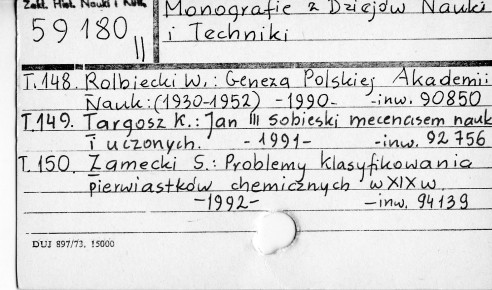 Zakł. Hist. Nauki i
Monografie z Dziejów Nauki
59180
II
i Techniki
T.148. Rolbiecki W.: Geneza Polskiej Akademii
Nauk: (1930-1952) -1990- -inw. 90850
T.149. Targosz K.: Jan III Sobieski mecenasem nauk
i uczonych. -1991- -inw. 92756
T.150. Zamecki S.: Problemy klasyfikowania
pierwiastków chemicznych w XIX w.
-1992- -inw. 94139
DUJ 897/73, 15000